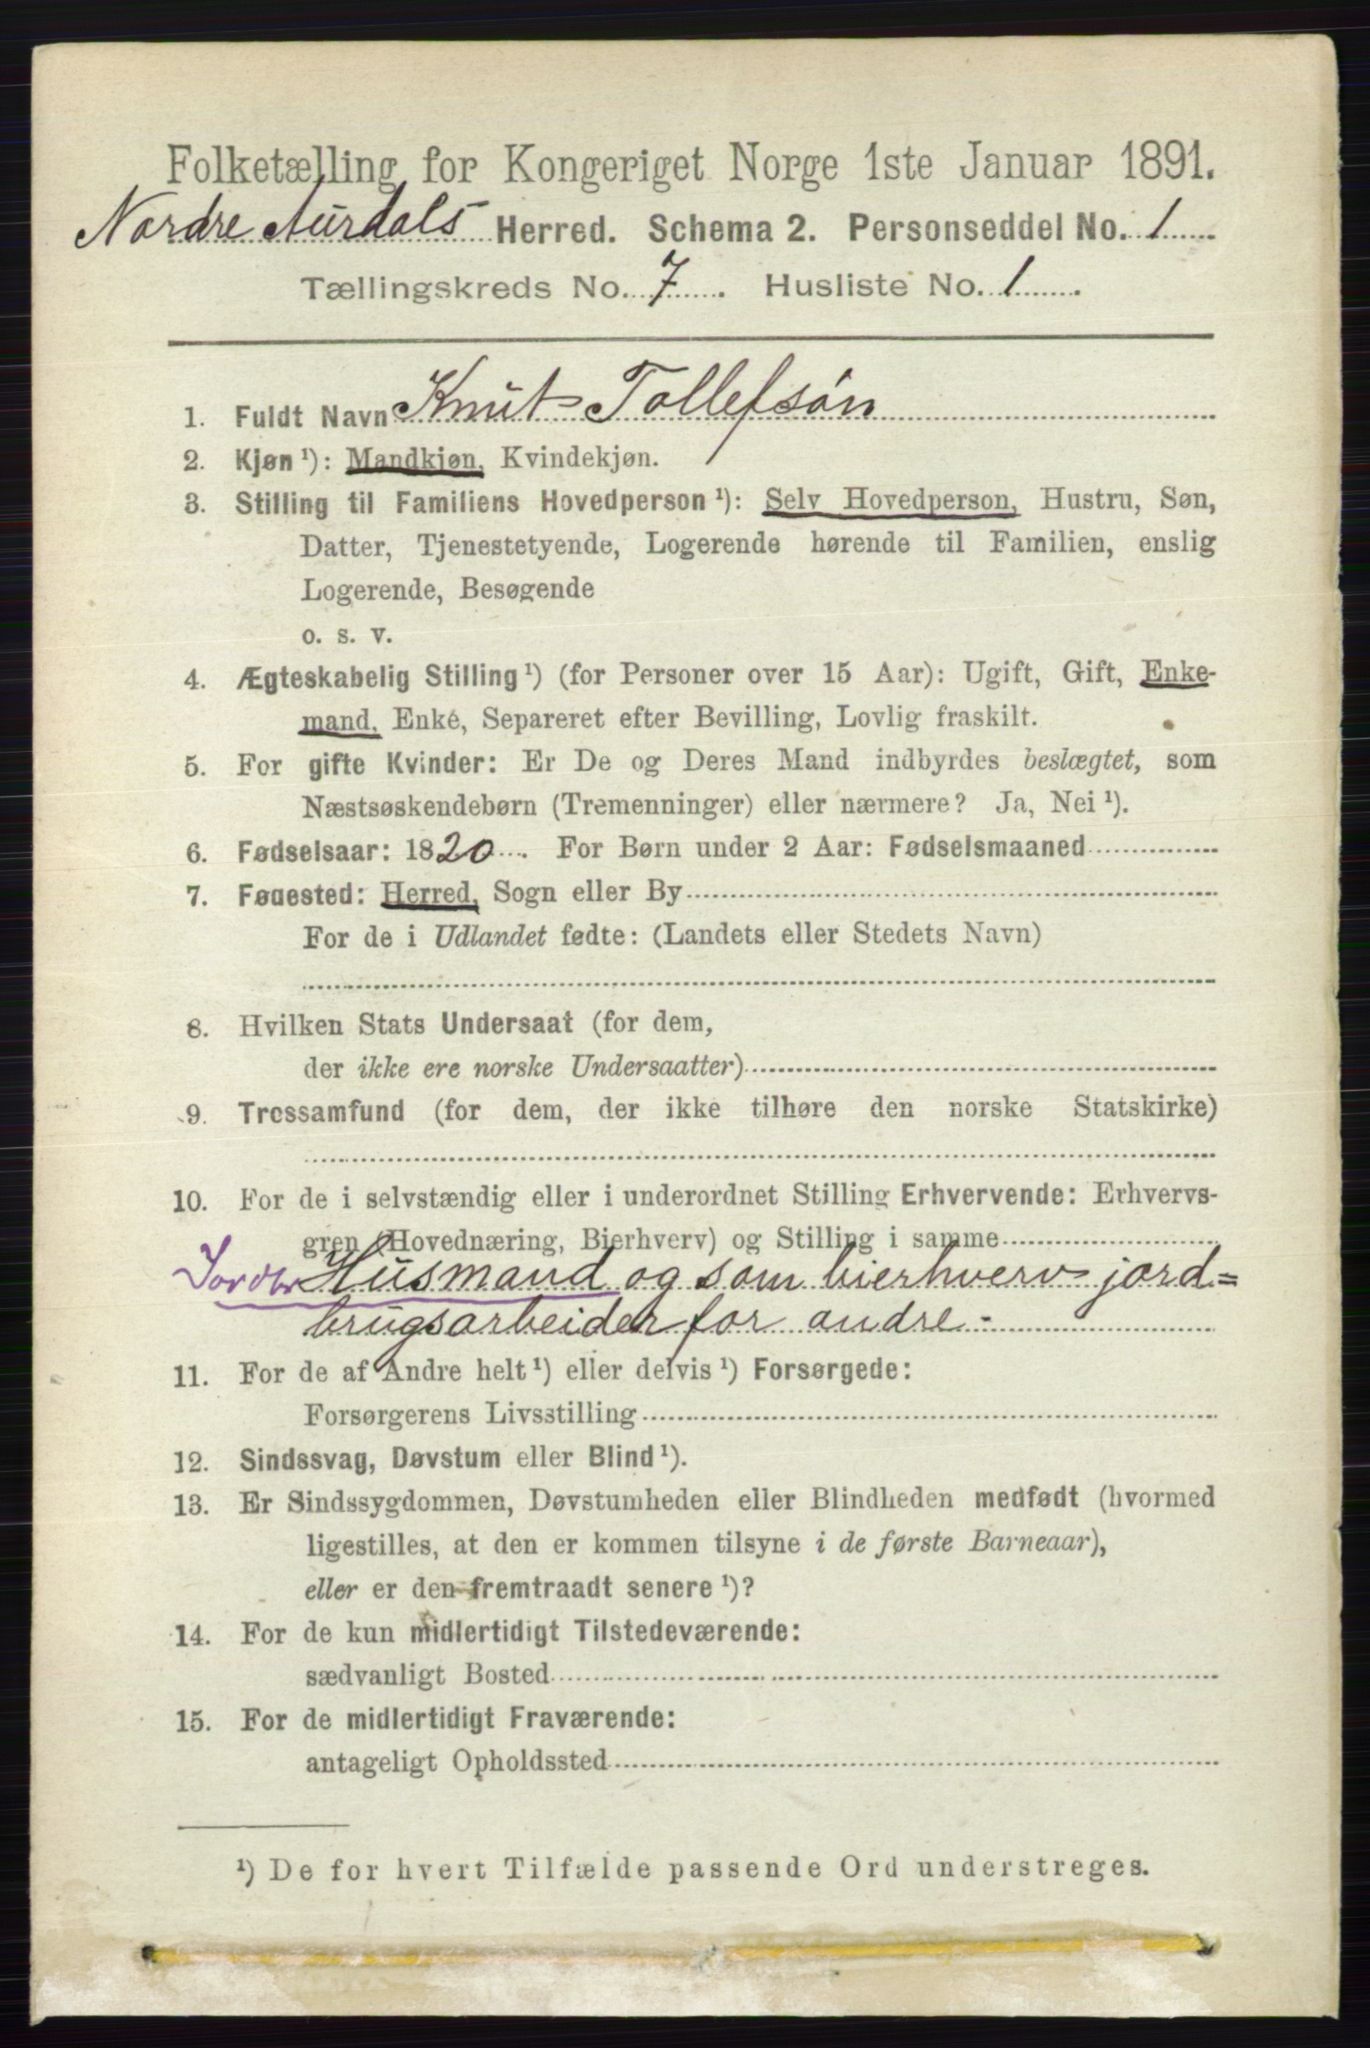 Folketælling for Kongeriget Norge 1ste Januar 1891.
Nordre Aurdals Herred. Schema 2. Personseddel No. 1
Tællingskreds No. 7. Husliste No. 1.
1. Fuldt Navn Knut Tollefsøn
2. Kjøn ¹): Mandkjøn, Kvindekjøn.
3. Stilling til Familiens Hovedperson ¹): Selv Hovedperson, Hustru, Søn,
Datter, Tjenestetyende, Logerende hørende til Familien, enslig
Logerende, Besøgende
o. s. v.
4. Ægteskabelig Stilling ¹) (for Personer over 15 Aar): Ugift, Gift, Enke-
mand, Enke, Separeret efter Bevilling, Lovlig fraskilt.
5. For gifte Kvinder: Er De og Deres Mand indbyrdes beslægtet, som
Næstsøskendebørn (Tremenninger) eller nærmere? Ja, Nei ¹).
6. Fødselsaar: 1820. For Børn under 2 Aar: Fødselsmaaned
7. Fødested: Herred, Sogn eller By
For de i Udlandet fødte: (Landets eller Stedets Navn)
8. Hvilken Stats Undersaat (for dem,
der ikke ere norske Undersaatter)
9. Trossamfund (for dem, der ikke tilhøre den norske Statskirke)
10. For de i selvstændig eller i underordnet Stilling Erhvervende: Erhvervs-
gren (Hovednæring, Bierhverv) og Stilling i samme
Jordbr Husmand og som bierhverv jord=
brugsarbeider for andre -
11. For de af Andre helt ¹) eller delvis ¹) Forsørgede:
Forsørgerens Livsstilling
12. Sindssvag, Døvstum eller Blind ¹).
13. Er Sindssygdommen, Døvstumheden eller Blindheden medfødt (hvormed
ligestilles, at den er kommen tilsyne i de første Barneaar),
eller er den fremtraadt senere ¹)?
14. For de kun midlertidigt Tilstedeværende:
sædvanligt Bosted
15. For de midlertidigt Fraværende:
antageligt Opholdssted
¹) De for hvert Tilfælde passende Ord understreges.